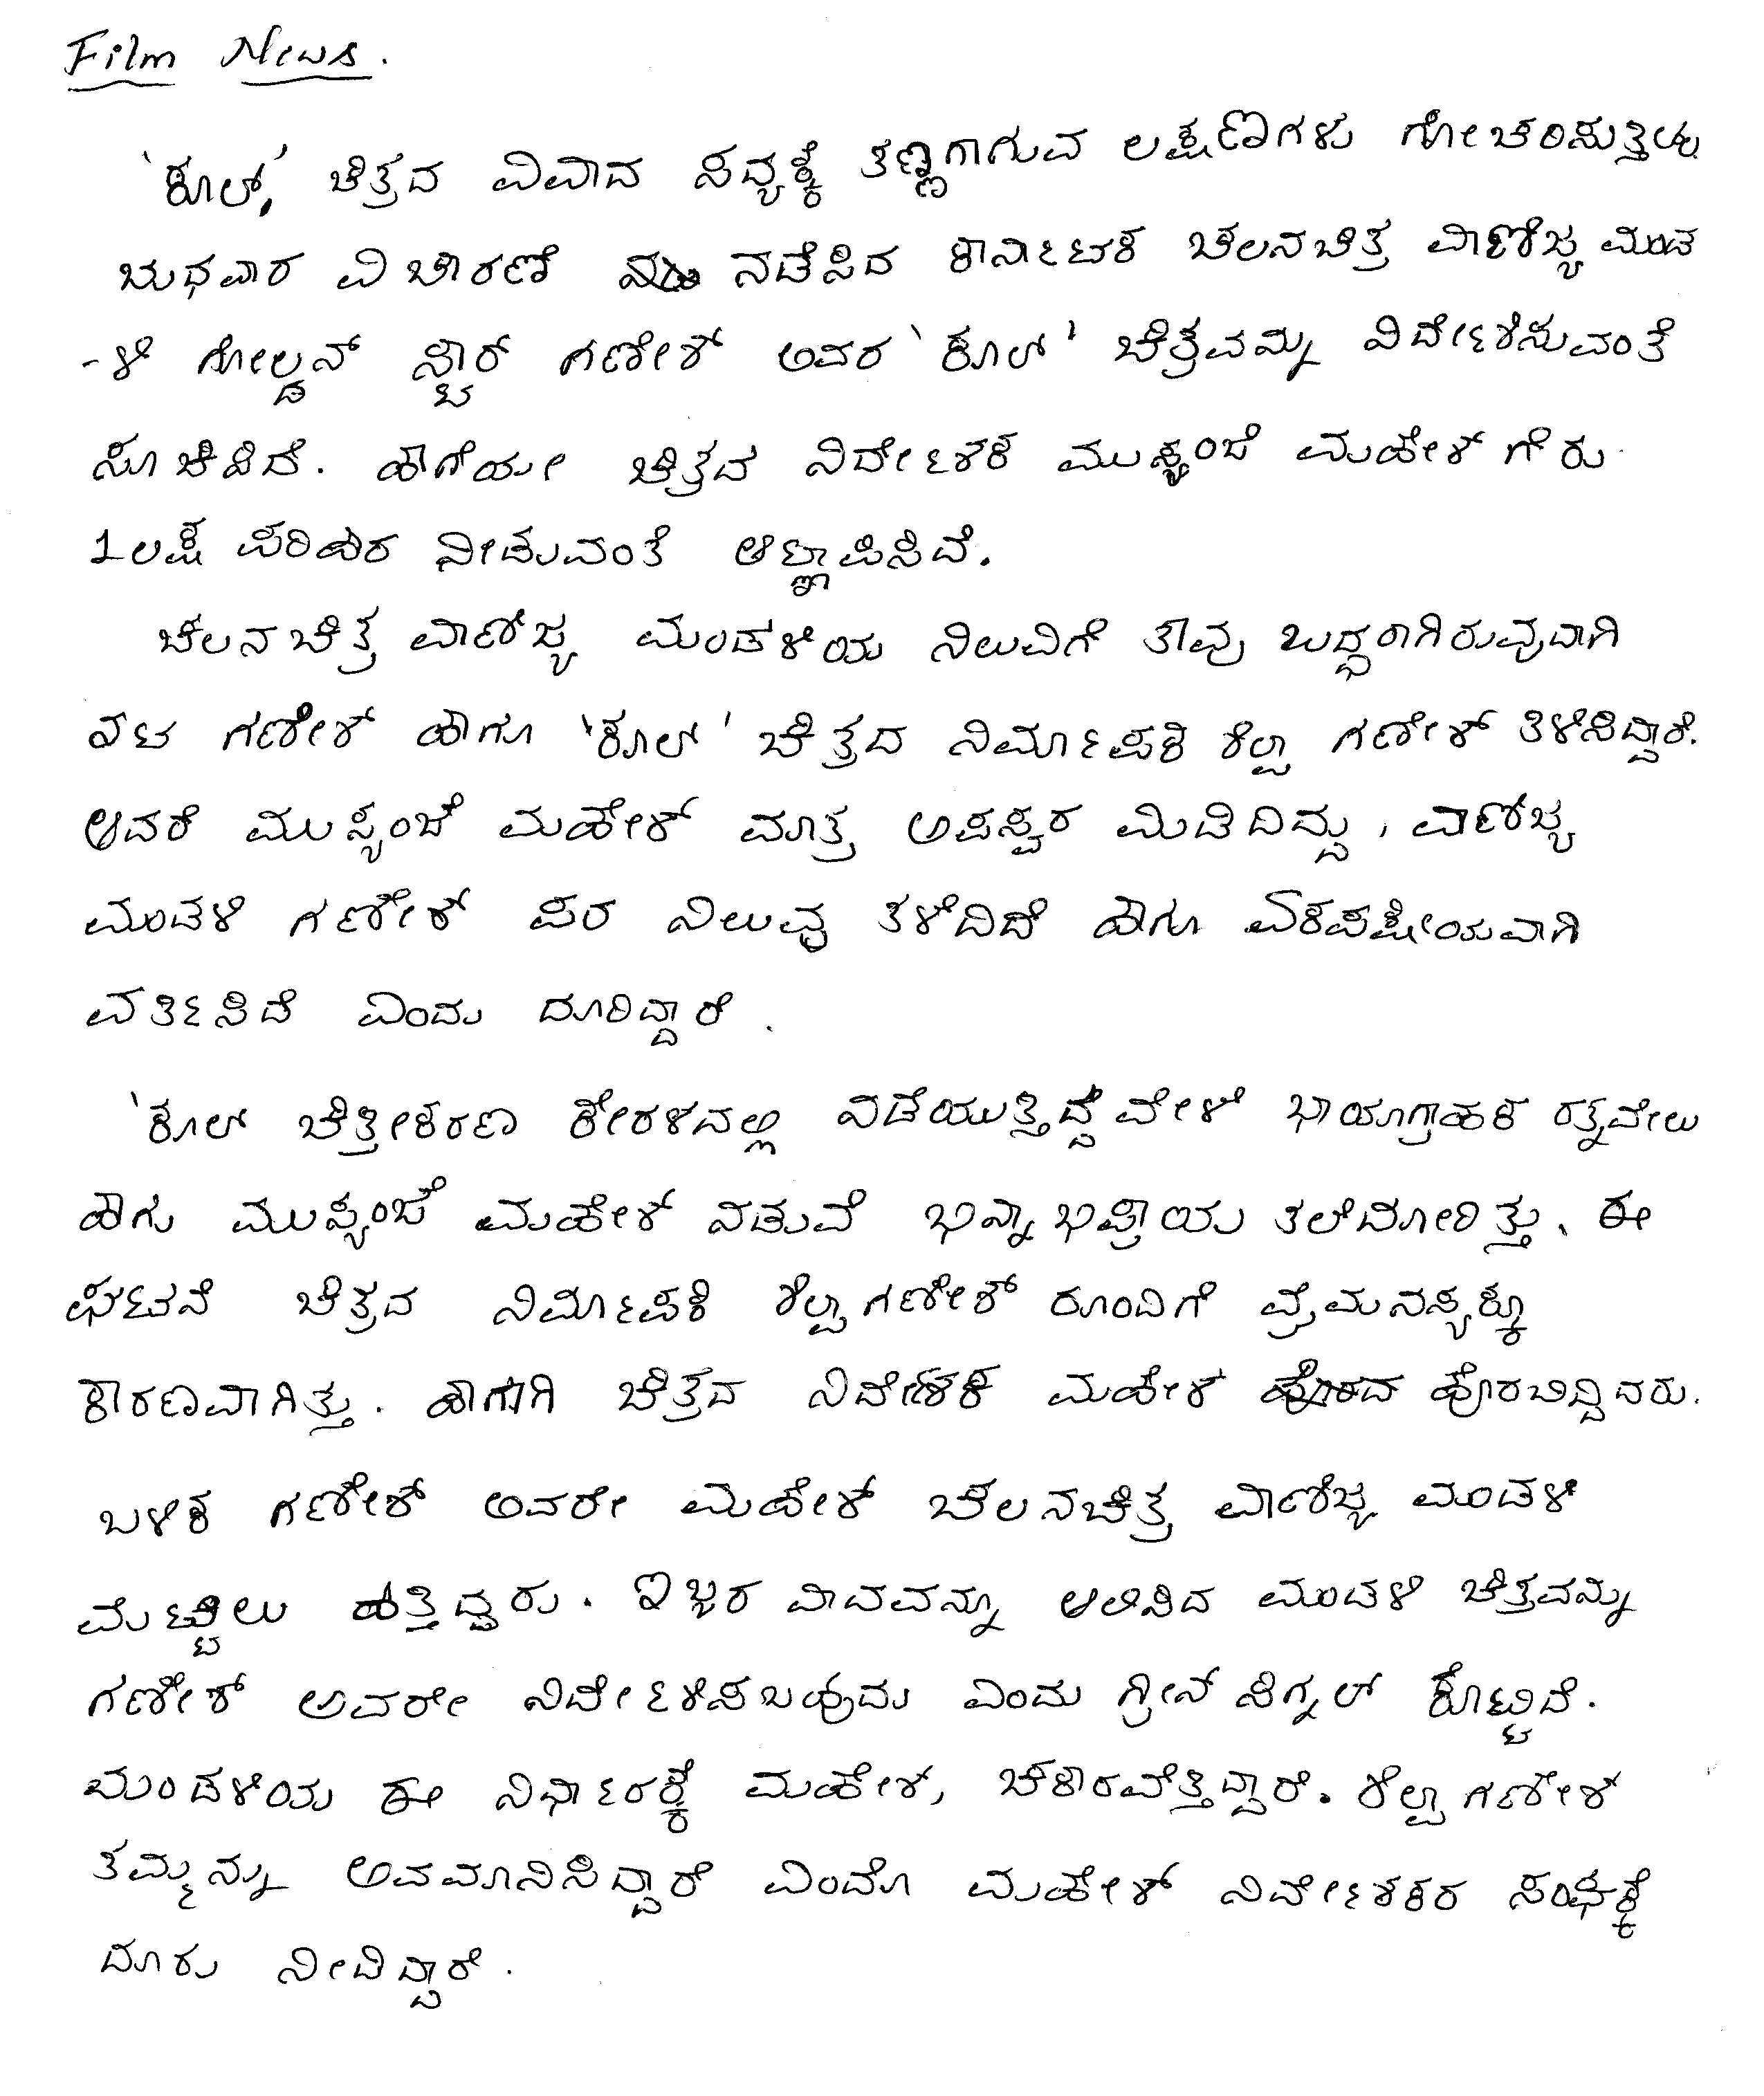 Film News.
'ಕೂಲ್,' ಚಿತ್ರದ ವಿವಾದ ಸದ್ಯಕ್ಕೆ ತಣ್ಣಗಾಗುವ ಲಕ್ಷಣಗಳು ಗೋಚರಿಸುತ್ತಿವೆ
ಬುಧವಾರ ವಿಚಾರಣೆ ನಡೆಸಿದ ಕರ್ನಾಟಕ ಚಲನಚಿತ್ರ ವಾಣಿಜ್ಯ ಮಂಡ
-ಳಿ ಗೋಲ್ಡನ್ ಸ್ಟಾರ್ ಗಣೇಶ್ ಅವರ 'ಕೂಲ್' ಚಿತ್ರವನ್ನು ನಿರ್ದೇಶಿಸುವಂತೆ
ಸೂಚಿಸಿದೆ. ಹಾಗೆಯೇ ಚಿತ್ರದ ನಿರ್ದೇಶಕ ಮುಸ್ಸಂಜೆ ಮಹೇಶ್ ಗೆ ರು
1 ಲಕ್ಷ ಪರಿಹಾರ ನೀಡುವಂತೆ ಆಜ್ಞಾಪಿಸಿದೆ.
ಚಲನಚಿತ್ರ ವಾಣಿಜ್ಯ ಮಂಡಳಿಯ ನಿಲುವಿಗೆ ತಾವು ಬದ್ಧರಾಗಿರುವುದಾಗಿ
ನಟ ಗಣೇಶ್ ಹಾಗೂ 'ಕೂಲ್' ಚಿತ್ರದ ನಿರ್ಮಾಪಕಿ ಶಿಲ್ಪಾ ಗಣೇಶ್ ತಿಳಿಸಿದ್ದಾರೆ.
ಆದರೆ ಮುಸ್ಸಂಜೆ ಮಹೇಶ್ ಮಾತ್ರ ಅಪಸ್ವರ ಮಿಡಿದಿದ್ದು, ವಾಣಿಜ್ಯ
ಮಂಡಳಿ ಗಣೇಶ್ ಪರ ನಿಲುವು ತಳೆದಿದೆ ಹಾಗೂ ಏಕಪಕ್ಷೀಯವಾಗಿ
ವರ್ತಿಸಿದೆ ಎಂದು ದೂರಿದ್ದಾರೆ.
'ಕೂಲ್ ಚಿತ್ರೀಕರಣ ಕೇರಳದಲ್ಲಿ ನಡೆಯುತ್ತಿದ್ದ ವೇಳೆ ಛಾಯಾಗ್ರಾಹಕ ರತ್ನವೇಲು
ಹಾಗು ಮುಸ್ಸಂಜೆ ಮಹೇಶ್ ನಡುವೆ ಭಿನ್ನಾಭಿಪ್ರಾಯ ತಲೆದೋರಿತ್ತು. ಈ
ಘಟನೆ ಚಿತ್ರದ ನಿರ್ಮಾಪಕಿ ಶಿಲ್ಪಾ ಗಣೇಶ್ ರೂಂದಿಗೆ ವೈಮನಸ್ಯಕ್ಕೂ
ಕಾರಣವಾಗಿತ್ತು. ಹಾಗಾಗಿ ಚಿತ್ರದ ನಿರ್ದೇಶಕ ಮಹೇಶ ಹೊರಬಿದ್ದಿದರು.
ಬಳಿಕ ಗಣೇಶ್ ಅವರೇ ಮಹೇಶ್ ಚಲನಚಿತ್ರ ವಾಣಿಜ್ಯ ಮಂಡಳಿ
ಮೆಟ್ಟಿಲು ಹತ್ತಿದ್ದರು. ಇಬ್ಬರ ವಾದವನ್ನೂ ಆಲಿಸಿದ ಮಂಡಳಿ ಚಿತ್ರವನ್ನು
ಗಣೇಶ್ ಅವರೇ ನಿರ್ದೇಶಿಸಬಹುದು ಎಂದು ಗ್ರೀನ್ ಸಿಗ್ನಲ್ ಕೊಟ್ಟಿದೆ.
ಮಂಡಳಿಯ ಈ ನಿರ್ಧಾರಕ್ಕೆ ಮಹೇಶ್, ಚಕಾರವೆತ್ತಿದ್ದಾರೆ. ಶಿಲ್ಪಾ ಗಣೇಶ್
ತಮ್ಮನ್ನು ಅವಮಾನಿಸಿದ್ದಾರೆ ಎಂದೂ ಮಹೇಶ್ ನಿರ್ದೇಶಕರ ಸಂಘಕ್ಕೆ
ದೂರು ನೀಡಿದ್ದಾರೆ.